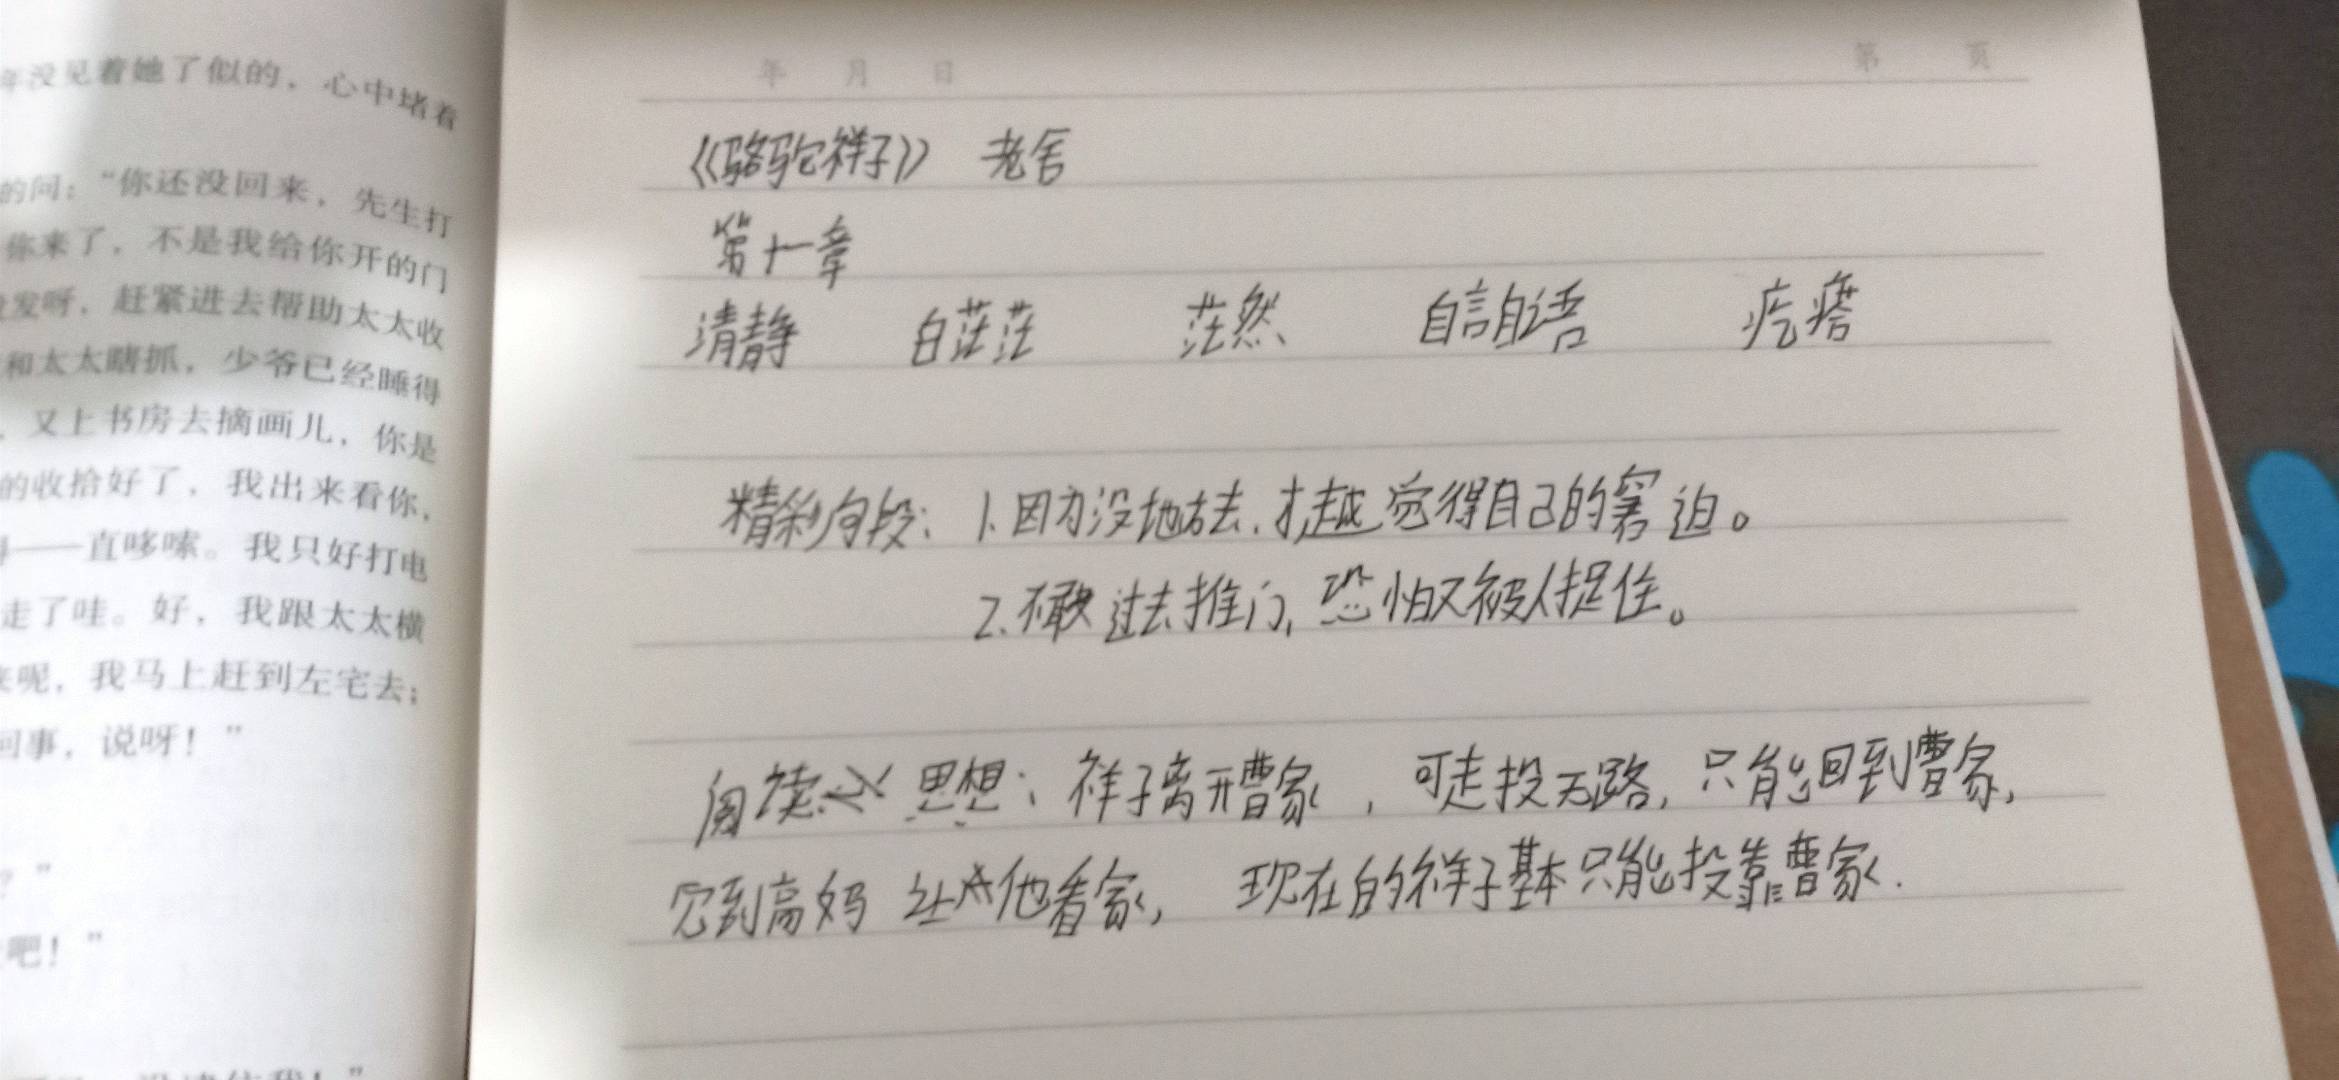 年没见着她了似的，心中堵着
的问：“你还没回来，先生打
你来了，不是我给你开的门
发呀，赶紧进去帮助太太收
和太太瞎抓，少爷已经睡得
，又上书房去摘画儿，你是
的收拾好了，我出来看你，
——直哆嗦。我只好打电
走了哇。好，我跟太太横
来呢，我马上赶到左宅去；
回事，说呀！”
？”
吧！”
年 月 日 第 页
《骆驼祥子》 老舍
第十一章
清静 白茫茫 茫然 自言自语 疙瘩
精彩句段：1.因为没地方去，才越觉得自己的窘迫。
2.不敢过去推门，恐怕又被人捉住。
阅读 思想：祥子离开曹家，可走投无路，只能回到曹家，
见到高妈 让他看家，现在的祥子基本只能投靠曹家.